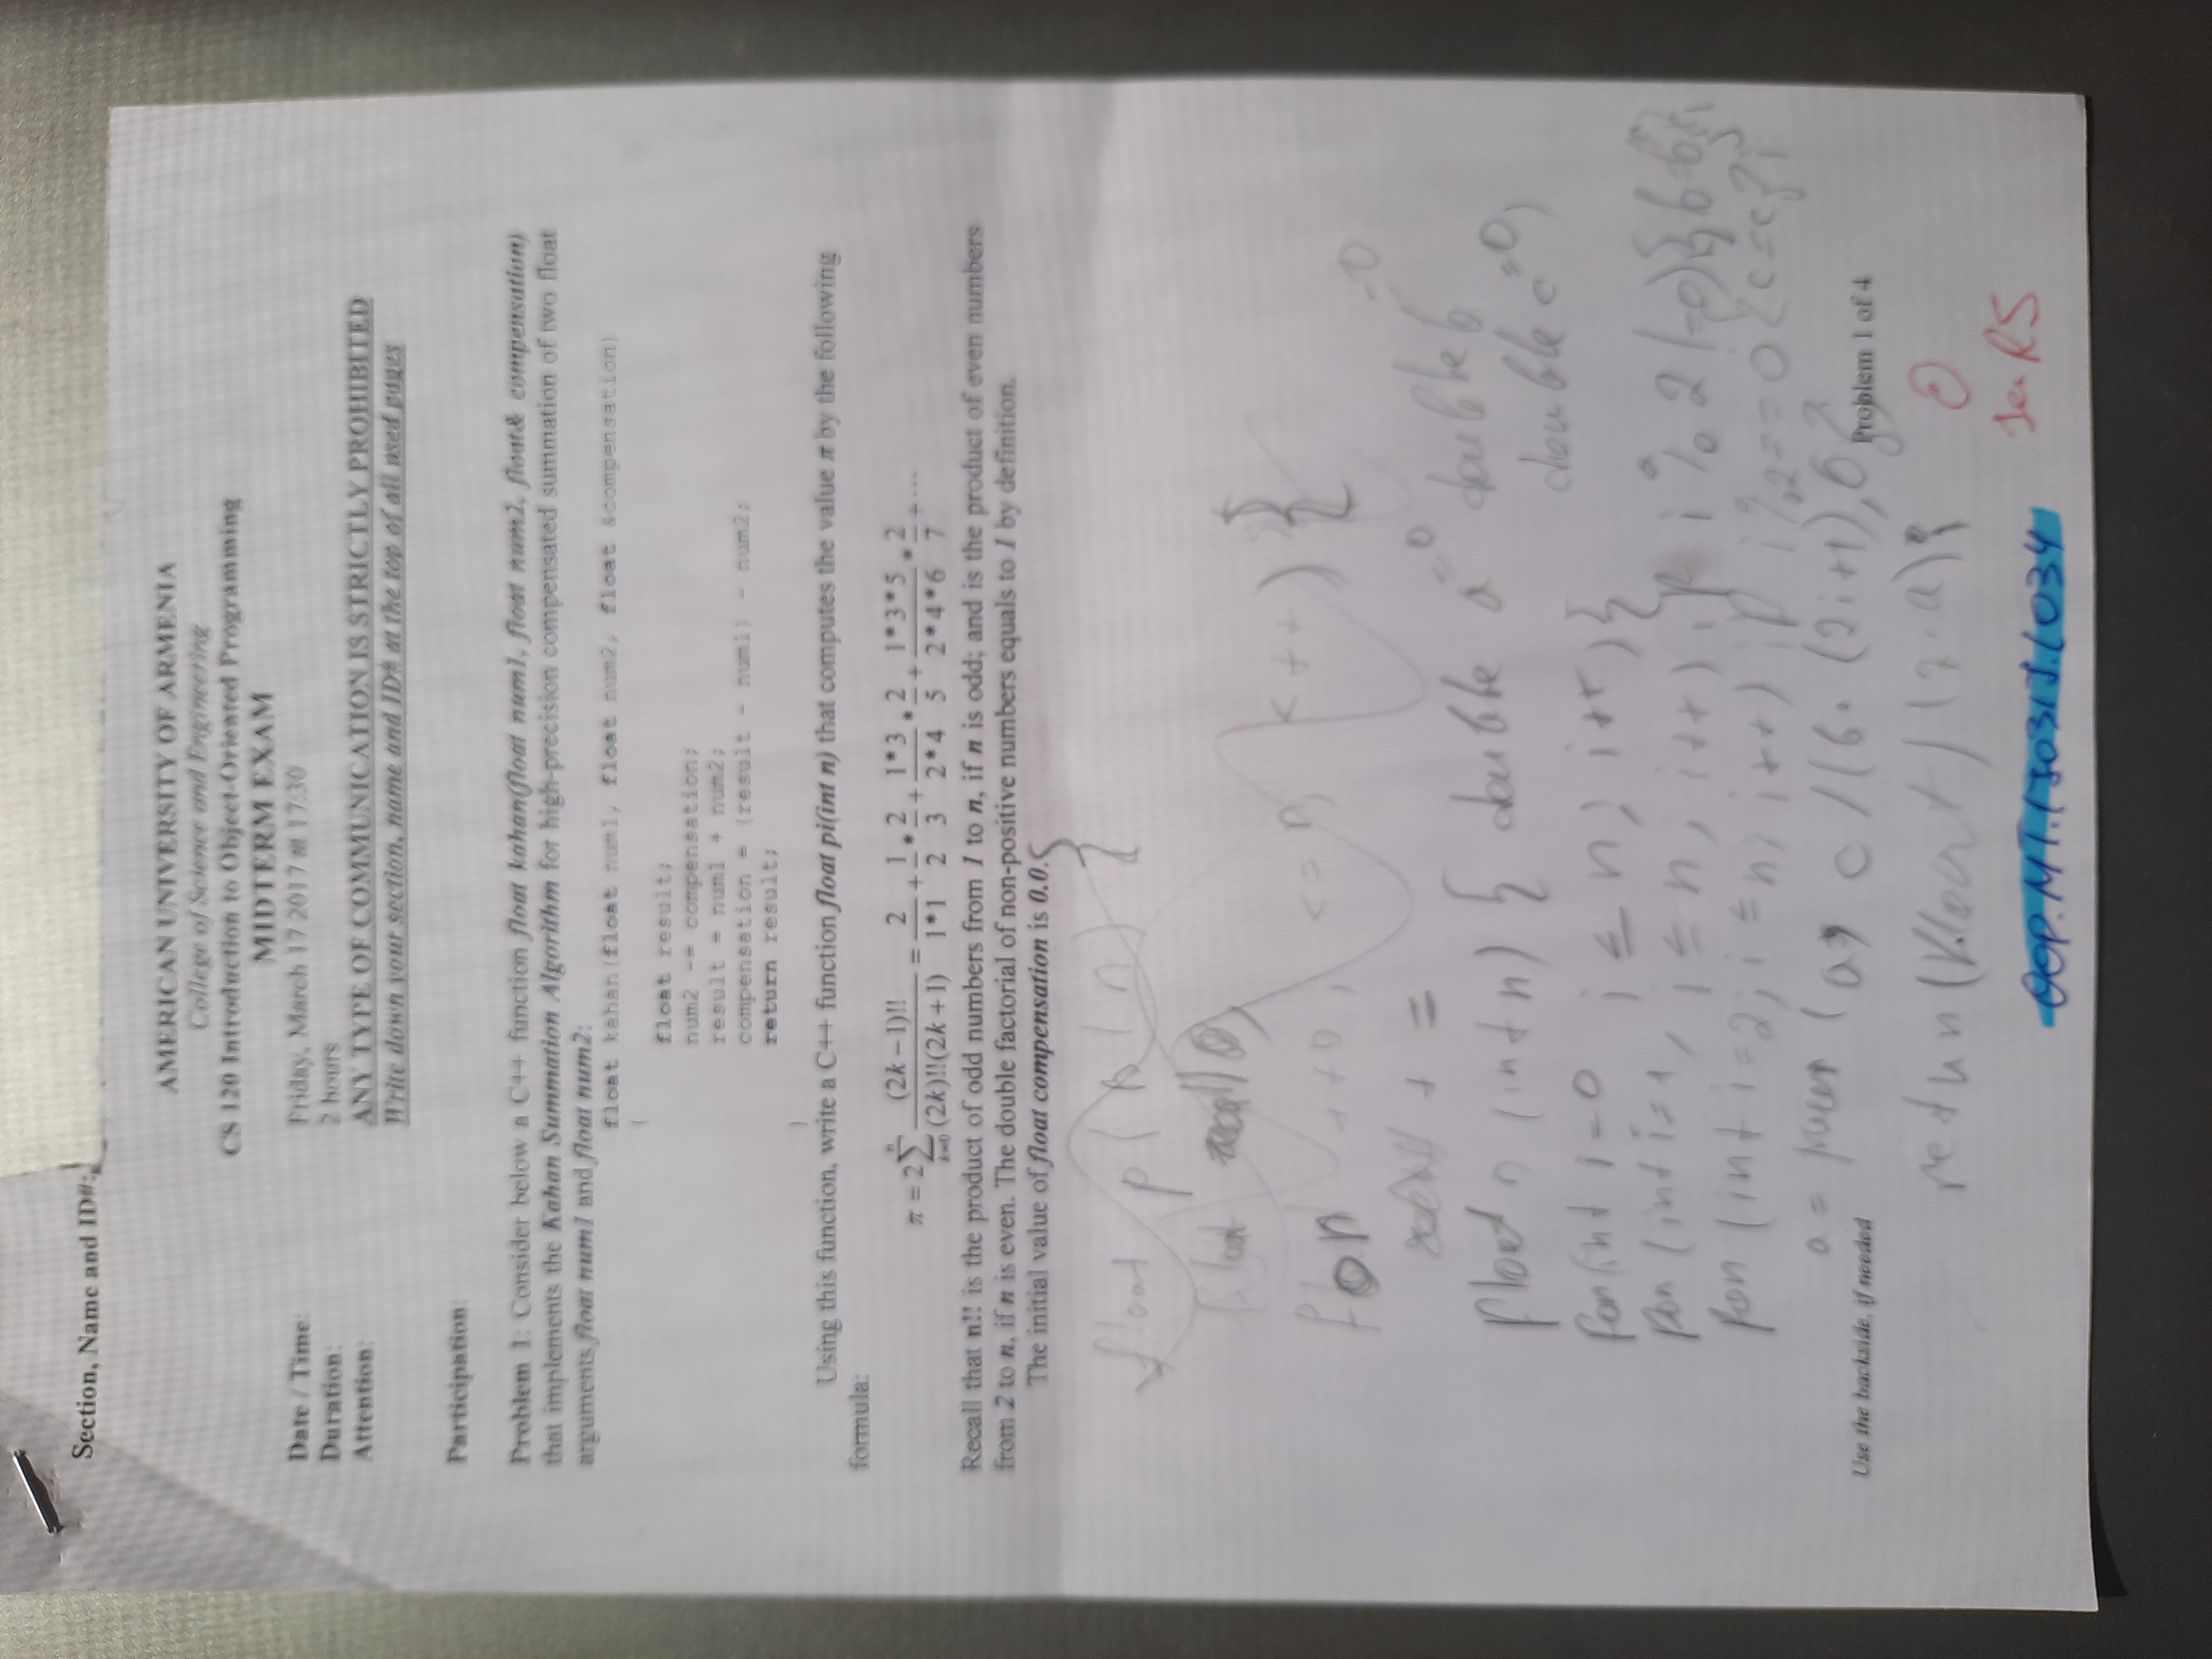 Section, Name and ID#:
AMERICAN UNIVERSITY OF ARMENIA
College of Science and Engineering
CS 120 Introduction to Object-Oriented Programming
MIDTERM EXAM
Date / Time: Friday, March 17 2017 at 17:30
Duration: 2 hours
Attention: ANY TYPE OF COMMUNICATION IS STRICTLY PROHIBITED
Write down your section, name and ID# at the top of all used pages
Participation:
Problem 1: Consider below a C++ function float kahan(float num1, float num2, float& compensation)
that implements the Kahan Summation Algorithm for high-precision compensated summation of two float
arguments float num1 and float num2:
float kahan(float num1, float num2, float &compensation)
{
float result;
num2 -= compensation;
result = num1 + num2;
compensation = (result - num1) - num2;
return result;
}
Using this function, write a C++ function float pi(int n) that computes the value π by the following
formula:
π = 2∑_{k=0}^{n} (2k – 1)!! / (2k)!!(2k + 1) = 2 / 1*1 + 1/2 * 2/3 + 1*3 / 2*4 * 2/5 + 1*3*5 / 2*4*6 * 2/7 + ···
Recall that n!! is the product of odd numbers from 1 to n, if n is odd; and is the product of even numbers
from 2 to n, if n is even. The double factorial of non-positive numbers equals to 1 by definition.
The initial value of float compensation is 0.0.
float p( n) {
float
<=n, k++) {
+ =
float (int n) { double a=0 double b=0
double c=0,
for(int i=0 i ≤ n; i++){
for (int i=1, i ≤ n; i++) if i % 2 !=0){
for (int i=2; i ≤ n; i++) if i%2==0
a = (a, c /(b. (2i+1),
Use the backside, if needed
Problem 1 of 4
return (float) (2.a);
0